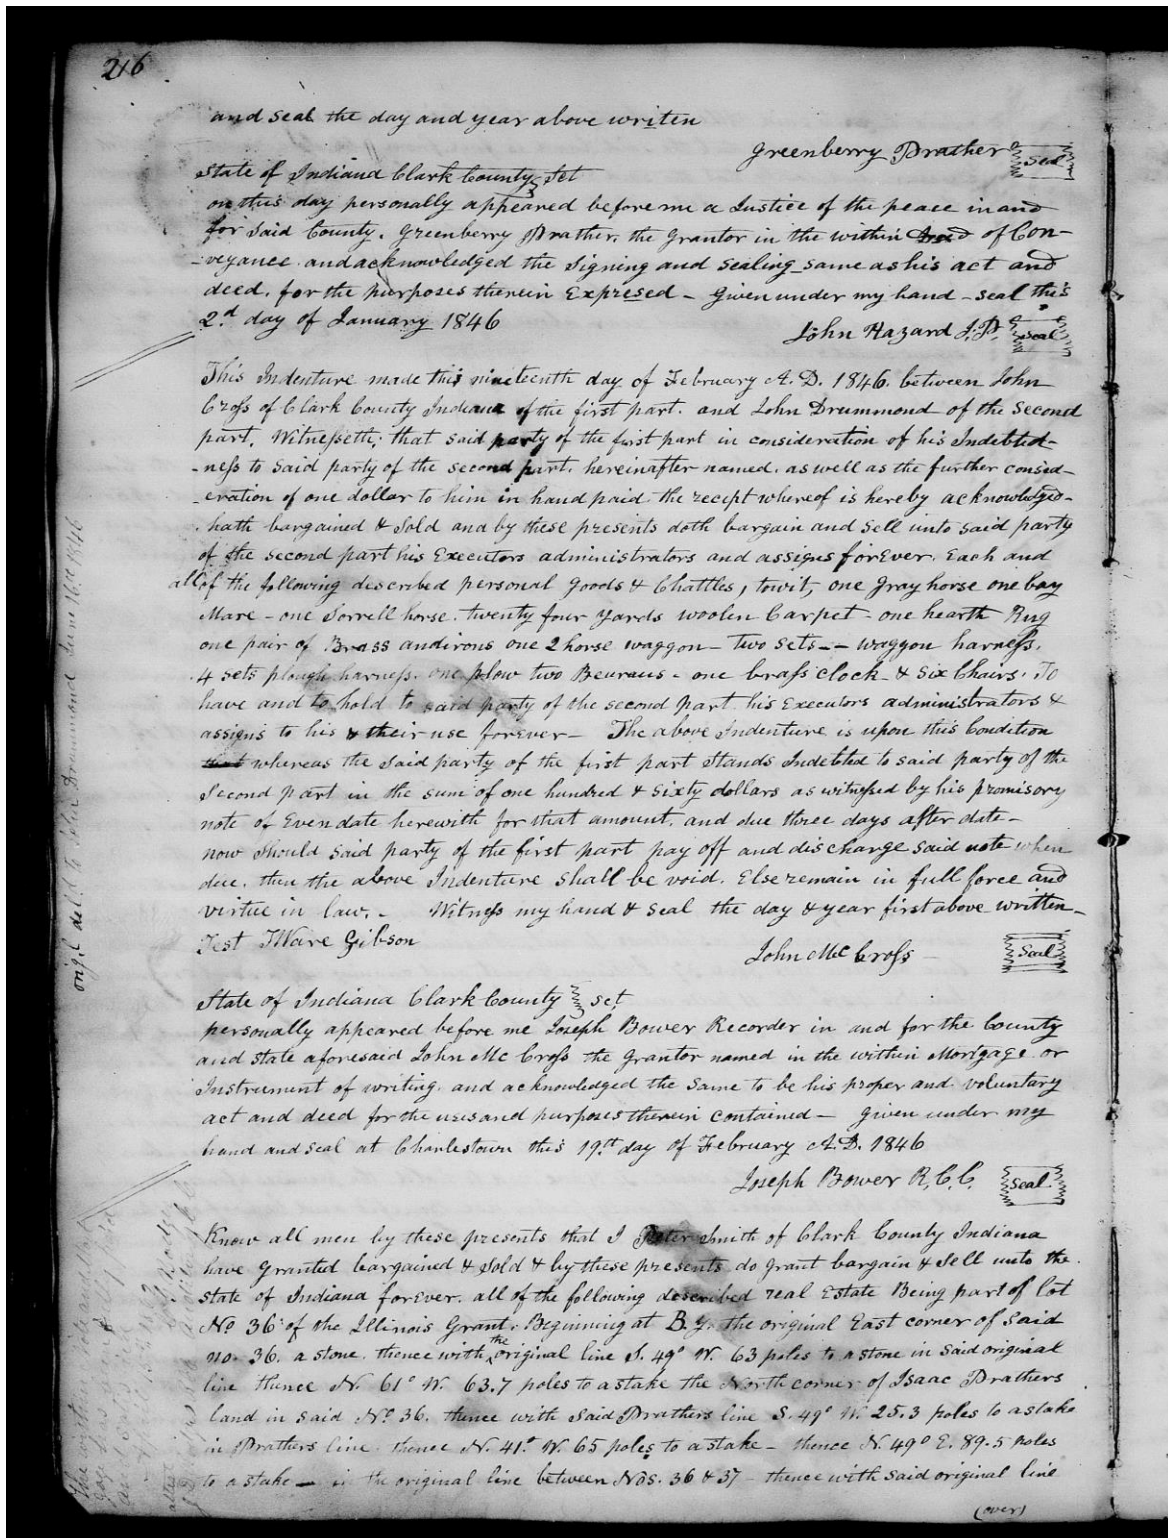 216
and seal the day and year above writen
Greenberry Prather Seal
State of Indiana Clark County Sct
on this day personally appeared before me a Justice of the peace in and
for said County. Greenberry Prather. the Grantor in the within Deed of Con-
-veyance and acknowledged the Signing and Sealing same as his act and
deed. for the purposes therein Expresed - Given under my hand - seal this
2.d day of January 1846
John Hazard J.P. Seal
This Indenture made this nineteenth day of February A.D. 1846. between John
Cross of Clark County Indiana of the first part. and John Drummond of the Second
part. Witnesseth; that said party of the first part in consideration of his Indebted-
-ness to said party of the second part. hereinafter named. as well as the further consid-
-eration of one dollar to him in hand paid the recipt whereof is hereby acknowledged-
hath bargained & Sold and by these presents doth bargain and Sell unto said party
of the second part his Executors administrators and assigns forEver. Each and
all of the following described personal Goods & Chattles, towit, one Gray horse one bay
Mare - one Sorrell horse. twenty four yards woolen Carpet - one hearth Rug
one pair of Brass andirons one 2 horse waggon - two sets -- waggon harness.
4 sets plough harness. one plow two Beuraus - one brass clock - & Six Chairs. To
have and to hold to said party of the second part. his Executors administrators &
assigns to his & their use forEver - The above Indenture is upon this Condition
that whereas the said party of the first part Stands Indebted to said party of the
Second part in the sum of one hundred & Sixty dollars as witnessed by his promisory
note of Even date herewith for that amount. and due three days after date -
now Should said party of the first part pay off and discharge said note when
due. then the above Indenture shall be void. Else remain in full force and
virtue in law. - Witness my hand & Seal the day & year first above written -
Test T Ware Gibson
John Mc Cross Seal
State of Indiana Clark County sct
personally appeared before me Joseph Bower Recorder in and for the County
and state aforesaid John Mc Cross the Grantor named in the within Mortgage or
Instrument of writing. and acknowledged the same to be his proper and voluntary
act and deed for the uses and purposes therein contained - Given under my
hand and seal at Charlestown this 19.th day of February A.D. 1846
Joseph Bower R.C.C. Seal
Know all men by these presents that I Peter Smith of Clark County Indiana
have Granted bargained & Sold & by these presents do Grant bargain & Sell unto the
state of Indiana forEver. all of the following described real Estate Being part of lot
No. 36 of the Illinois Grant. Beginning at B.Y. the original East corner of said
no. 36. a stone. thence with the original line S. 49° W. 63 poles to a stone in said original
line thence N. 61° W. 63.7 poles to a stake the North corner of Isaac Prathers
land in said No. 36. thence with said Prathers line S. 49° W. 25.3 poles to a stake
in Prathers line thence N. 41° W. 65 poles to a stake - thence N. 49° E. 89.5 poles
to a stake - in the original line between Nos. 36 & 37 - thence with said original line
(over)
orig.l del. to John Drummond June 1846